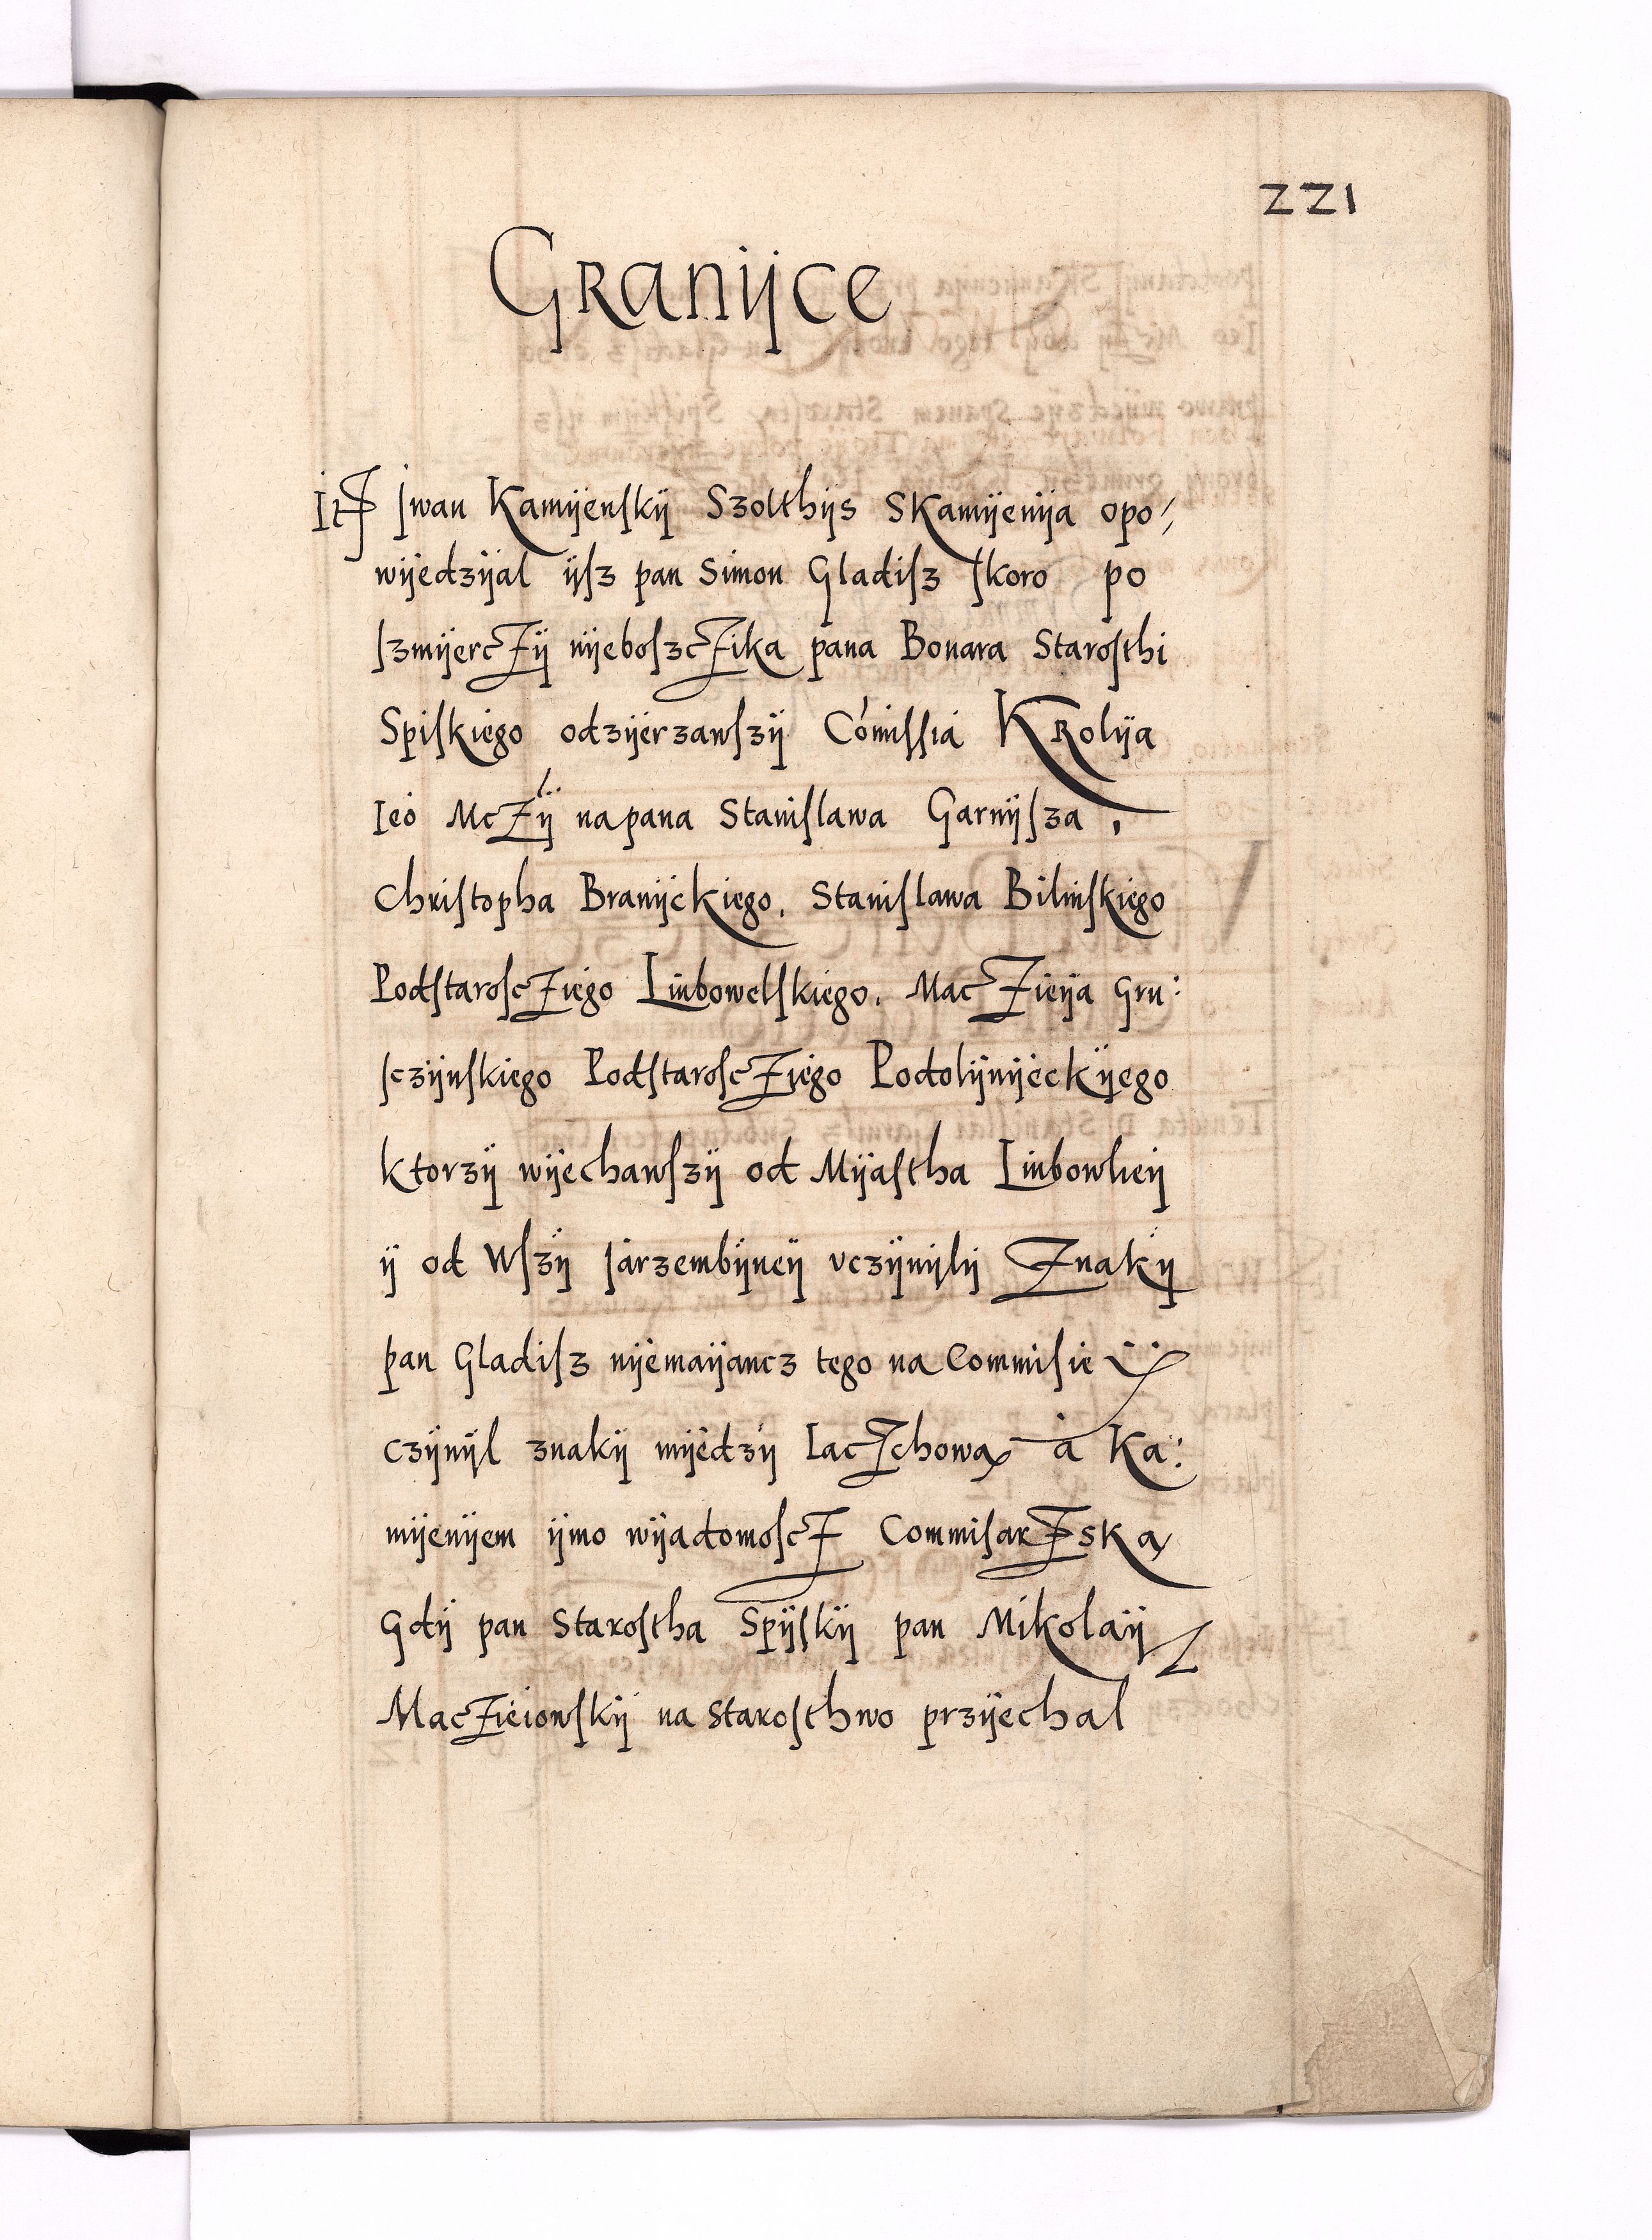 221
Granÿce
It Iwan Kamÿenskÿ Szolthÿs SKamÿenÿa opo⸗
wÿedzÿal ÿsz pan Simon Gladisz skoro po
szmÿerczÿ nÿeboszczika pana Bonara Starosthi
Spiskiego odzÿerzawszÿ Comissia Krolÿa
Ieo Mczÿ na pana Stanislawa Garnÿsza,
Christopha Branÿckiego, Stanislawa Bilinskiego
Podstaroscziėgo Liubowelskiego, Maczieÿa Gru:
sczÿnskiego Podstaroscziego Podolÿnÿeckÿego
ktorzÿ wÿechawszÿ od Mÿastha Liubowlieÿ
ÿ od Wszÿ Iarzembÿneÿ vczÿnÿlÿ Znakÿ
pan Gladisz nÿemaÿancz tego na Commisie ÿ
czÿnÿl znakÿ mÿedzÿ Iaczchową a Ka:
mÿenÿem ÿmo wÿadomoscz Commisarzską
Gdÿ pan Starostha Spÿskÿ pan Mikolaÿ
Maczieiowskÿ na Starosthwo przÿechal